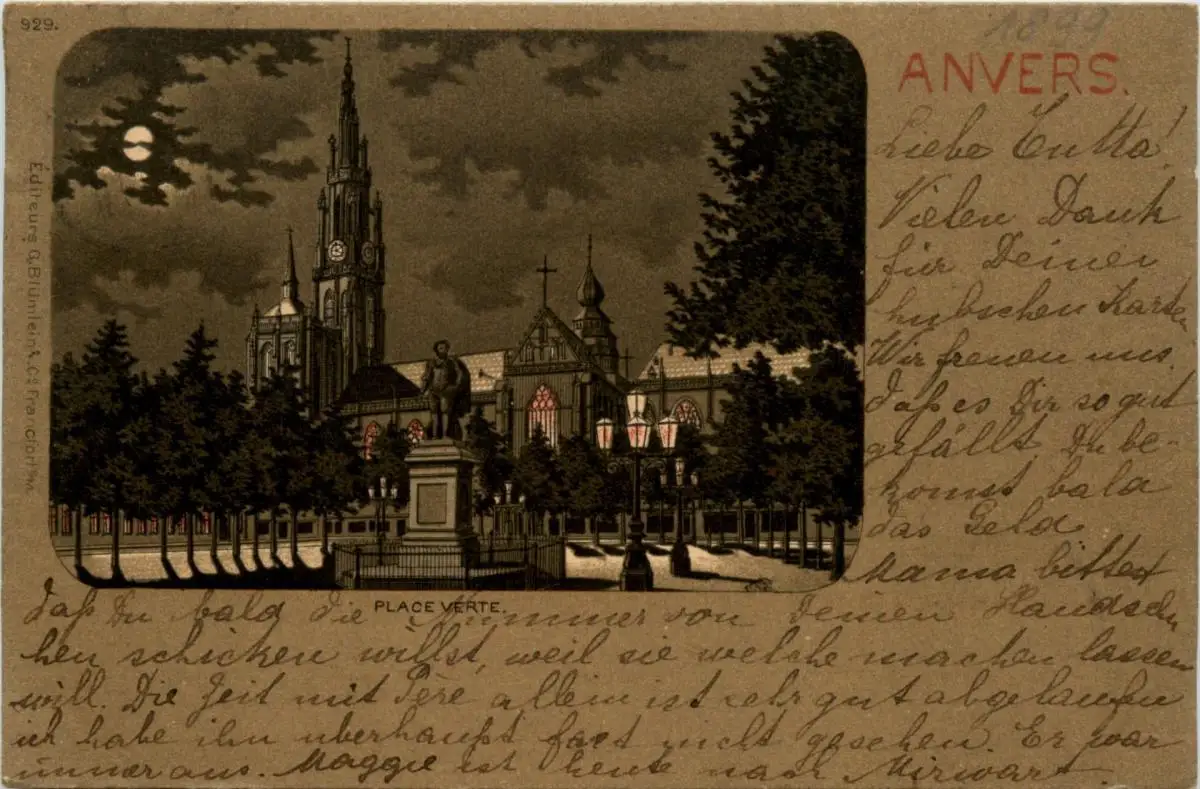 929.
1899
ANVERS.
Éditeurs G. Blümlein & Co. Francfort s/M
Liebe Tutta!
Vielen Dank
für Deinen
hübschen Karten
Wir freuen uns.
daß es Dir so gut
gefällt. Du be-
komst bald
das Geld
Mama bittet
PLACE VERTE.
daß Du bald die Nummer von Deinen Handschu
hen schicken willst, weil sie welche machen lassen
will. Die Zeit mit Père allein ist sehr gut abgelaufen
ich habe ihn überhaupt fast nicht gesehen. Er war
immer aus. Maggie ist heute nach Mirwart.